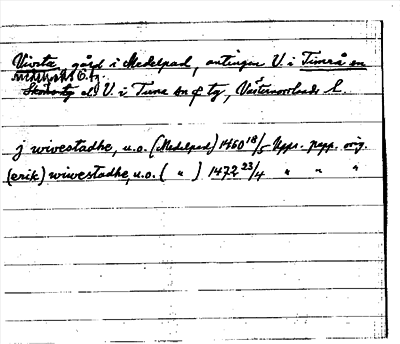 Vivsta, gård i Medelpad, antingen V. i Timrå sn
Medelpads Ö. tg.
Skönstg el. V. i Tuna sn o tg, Västernorrlands l.
j wiwestadhe, u.o. (Medelpad) 1460 18/5 Upps. papp. orig.
(erik) wiwestadhe, u.o. ( " ) 1472 23/4 " " "